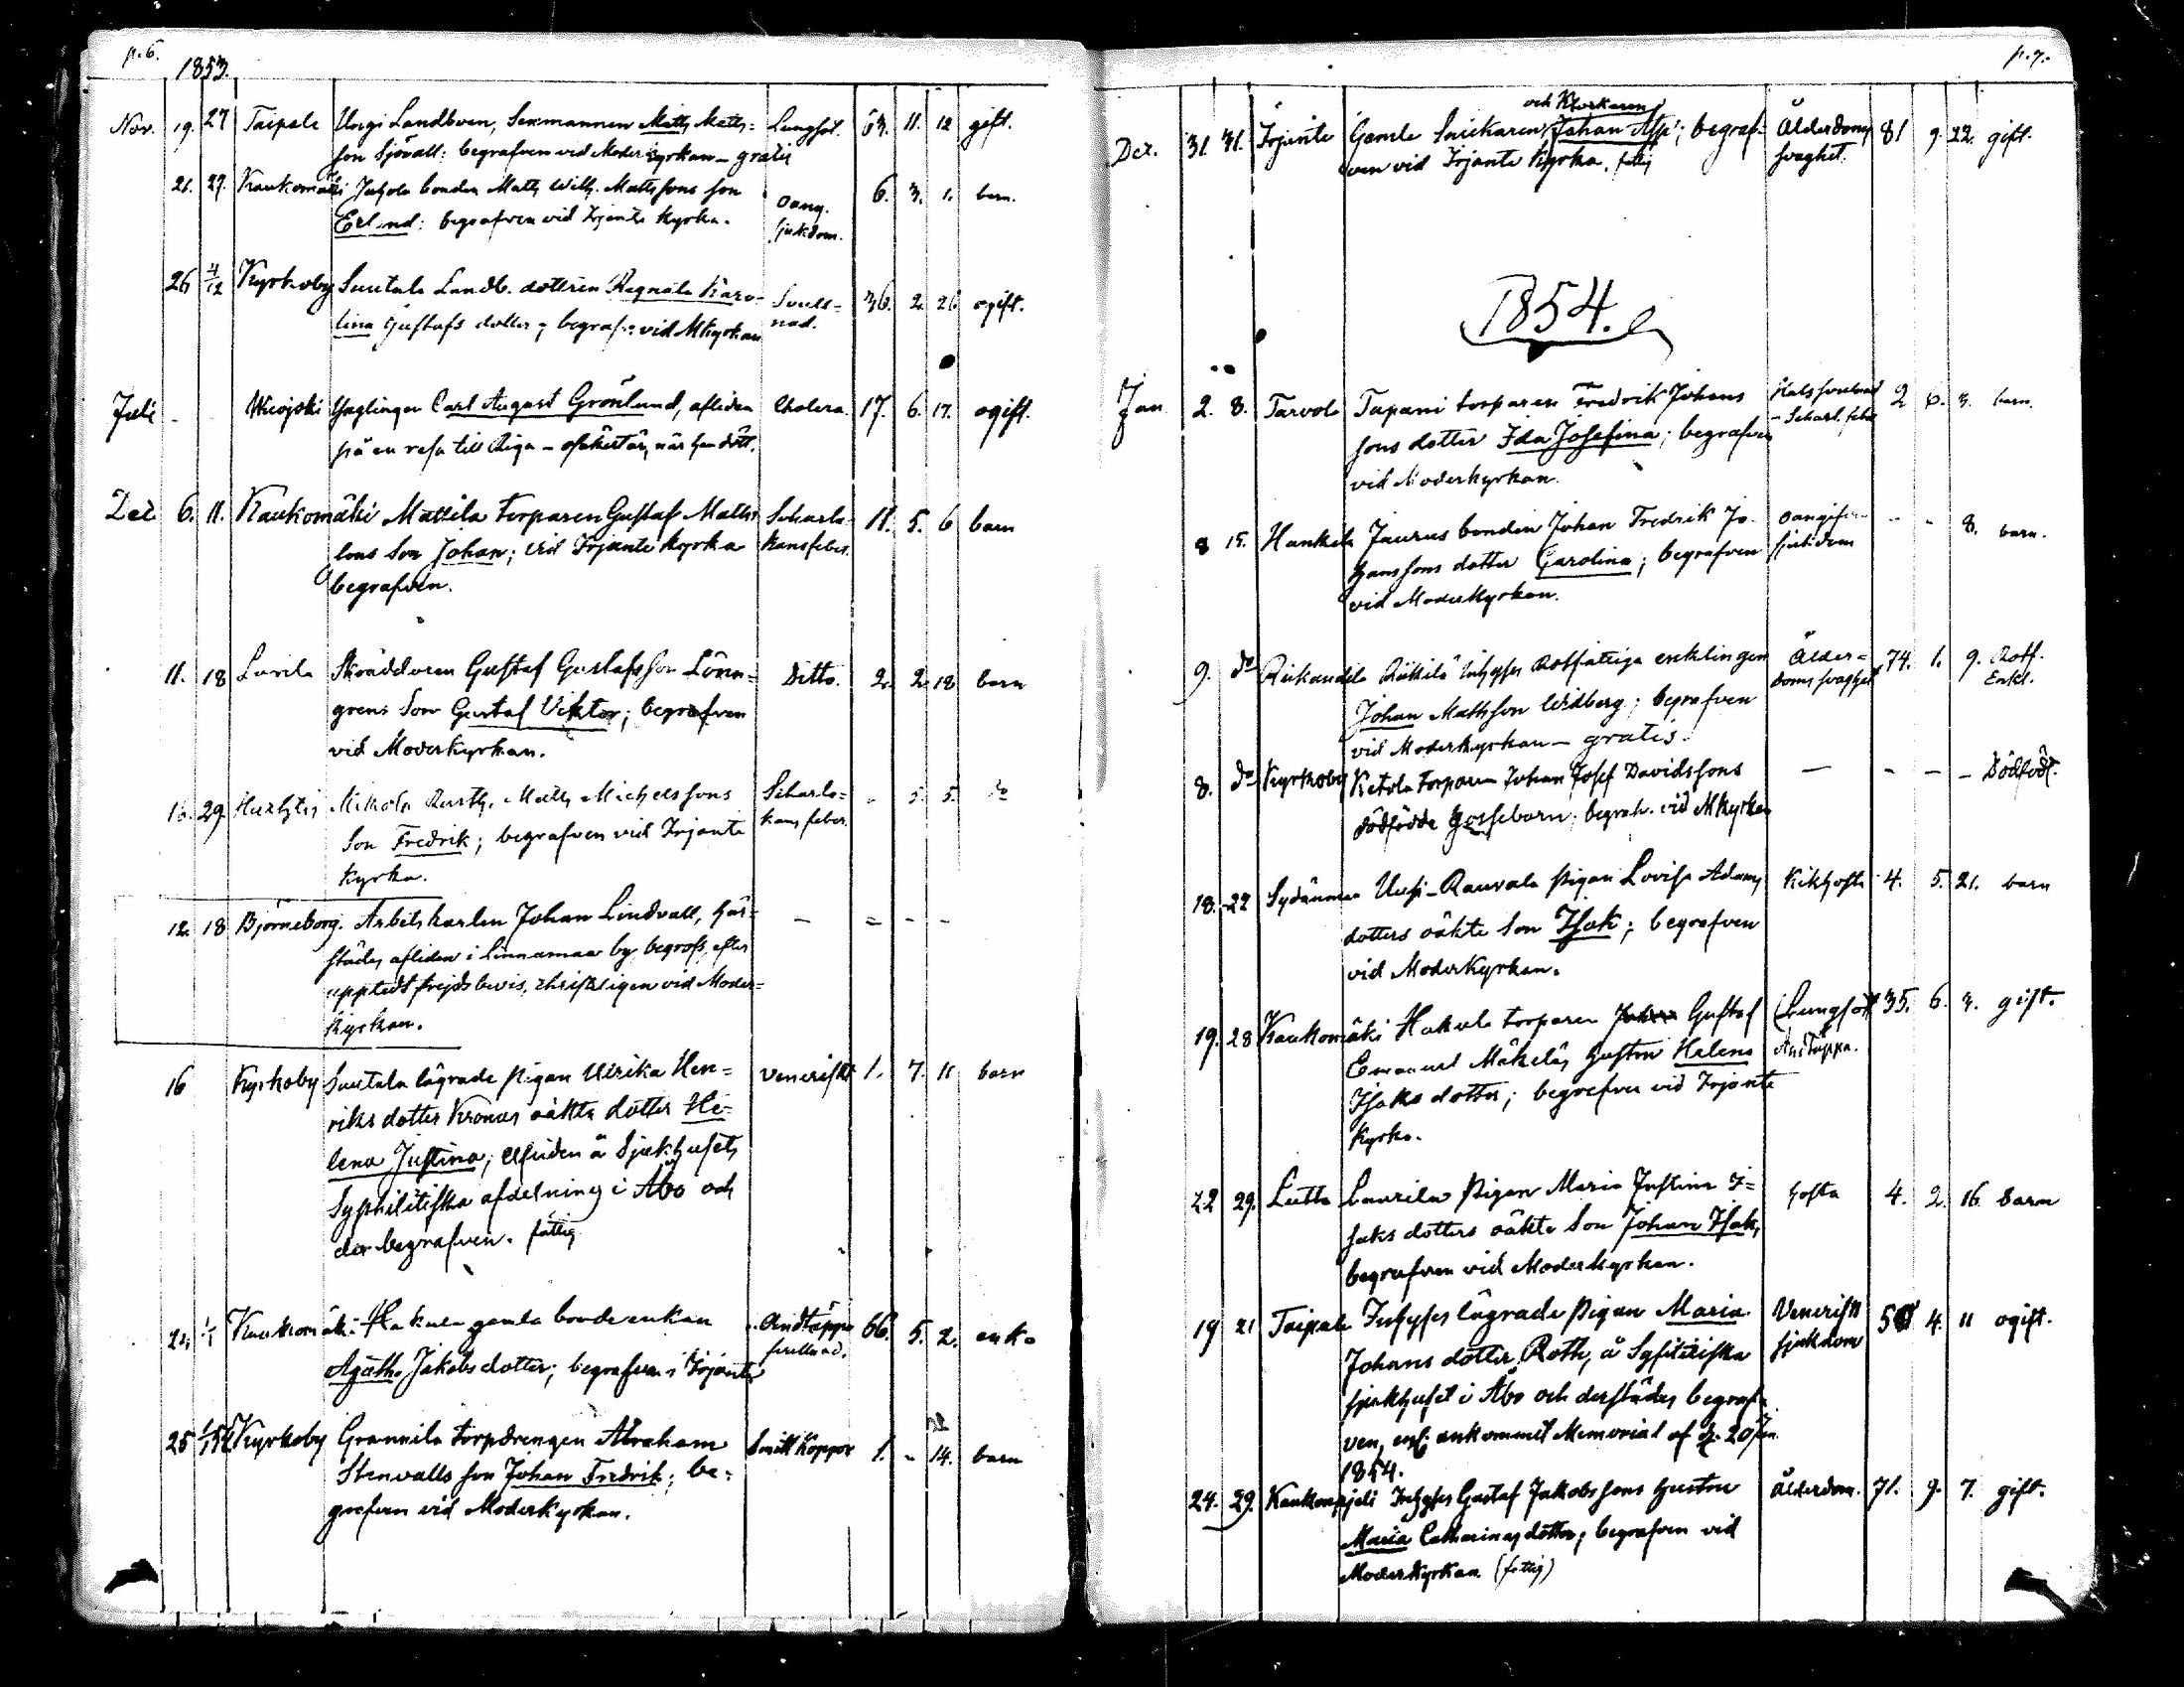 p. 6.
1853.
Nov. 19. 27 Taipale Uusi Landboen, Sexmannen Matts Matts= Lungsot. 63. 11. 12 gift.
son Sjövall: begrafven vid Moderkyrkan - gratis
21. 27. Kaukomäki Juhola bonden Matts Wilh. Mattssons son Oang. 6. 3. 1. barn.
Erland: begrafven vid Irjante Kyrka. sjukdom.
26 4/12 Kyrkoby Suutala Landb. dottren Regnala Karo- Svull= 36. 2. 26 ogift.
lina Gustafs dotter; begrafv. vid MKyrkan nad.
Juli - - Ynglingen Carl August Grönlund, afliden Cholera. 17. 6. 17. ogift.
på en resa till Riga - när han dött.
Dec. 6. 11. Kaukomäki Mattila torparen Gustaf Matts Scharla- 11. 5. 6 barn
sons Son Johan; vid Irjante kyrka kansfeber.
begrafven.
11. 18 Lavila Skräddaren Gustaf Gustafsson Lönn= Ditto. 2. 2. 18 barn
grens Son Gustaf Viktor; begrafven
vid Moderkyrkan.
29. Huxhtis Mikola Rusth. Matts Michelssons Scharla= - 5. 5. do
Son Fredrik; begrafven vid Irjante kans feber.
kyrka.
12. 18 Björneborg. Arbetskarlen Johan Lindvall, här= - = - -
städes afliden i Linnamaa by begrafs, efter
uppteedt frejdsbevis, christeligen vid Moder=
kyrkan.
16 Kyrkoby Suutala lägrade pigan Ulrika Hen= Venerisk 1. 7. 11 barn
riks dotter Kronas oäkta dotter He=
lena Justina; Afliden å Sjukhusets
Syphilitiska afdelning i Åbo och
der begrafven. fattig
24, 1/1 Kaukomäki Hakula gamla bonde enkan Andtäppa 66. 5. 2. enka
Agatha Jakobs dotter; begrafven i Irjante svullnad.
25 1/1 54 Kyrkoby Grannila torpdrengen Abraham Småt Koppor 1. - 14. barn
Stenvalls son Johan Fredrik; be-
grafven vid Moderkyrkan.
p. 7.
och Klockaren
Dec. 31. 31. Irjante Gamle Snickaren Johan Alp; begraf- Ålderdoms 81 9. 22. gift.
ven vid Irjante Kyrka. fattig svaghet.
1854.
Jan 2. 8. Tarvola Tapani torparen Fredrik Johans Halssvullnad 2 6. 3. barn.
sons dotter Ida Josefina; begrafven - Scharl. feber
vid Moderkyrkan.
8 15. Hankila Jaurus bonden Johan Fredrik Jo- oangifven - - 8. barn.
hanssons dotter Carolina; begrafven sjukdom
vid Moderkyrkan.
9. do Inhyses Rotfattiga enklingen Ålder= 74. 1. 9. Rotf.
Johan Mattsson Widberg; begrafven doms svaghet Enkl.
vid Moderkyrkan - gratis.
8. do Kyrkoby Ketola torparen Johan Josef Davidssons - - - - Dödfödt.
dödfödde Gossebarn; begrafv. vid MKyrkan
18. 22 Sydänmaa Uusi-Rauvala pigan Lovisa Adams Kikhosta 4. 5. 21. barn
dotters oäkta Son Isak; begrafven
vid Moderkyrkan.
19. 28 Kaukomäki Hakula torparen Gustaf (Lungsot 35. 6. 3. gift.
Emanuel Mäkeläs hustru Helena Andtäppa.
Isaks dotter; begrafven vid Irjante
Kyrka.
22 29. Lutta Laurila pigan Maria Justina I= hosta 4. 2. 16 barn
saks dotters oäkta Son Johan Isak,
begrafven vid Moderkyrkan.
19 21 Taipale Inhyses lägrade pigan Maria Venerisk 4. 11 ogift.
Johans dotter Roth, å Syfilitiska sjukdom
sjukhuset i Åbo och derstädes begraf-
ven, enl. ankommet Memorial af d. 20 Jan.
1854.
24. 29. Inhyses Gustaf Jakobssons hustru Ålderdom. 71. 9. 7. gift.
Maria Catharinas dotter; begrafven vid
Moderkyrkan (fattig)